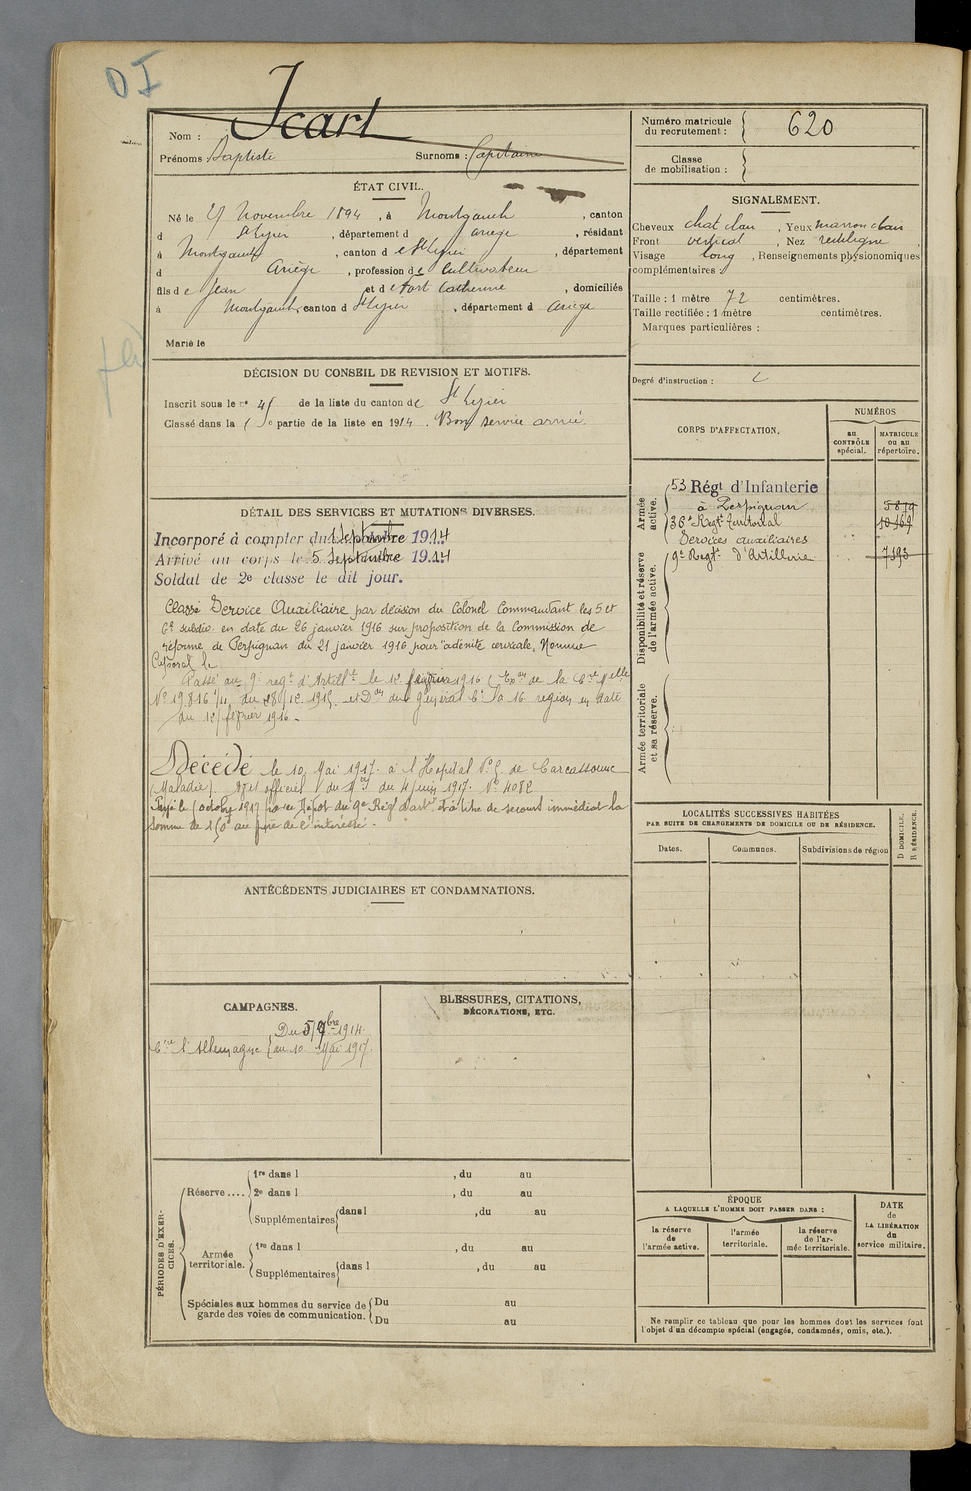 Nom : Icart
Prénoms : Baptiste Surnoms : Capitaine
ÉTAT CIVIL.
Né le Novembre 1894, à Montgauch, canton
d St Lizier, département d Ariège, résidant
à Montgauch, canton d e St Lizier, département
d Ariège, profession de Cultivateur
fils de Jean et d e Fort Catherine, domiciliés
à Montgauch, canton d St Lizier, département d Ariège
Marié le
DÉCISION DU CONSEIL DE REVISION ET MOTIFS.
Inscrit sous le n° de la liste du canton de St Lizier
Classé dans la 1re partie de la liste en 1914. Bon service armé.
DÉTAIL DES SERVICES ET MUTATIONS DIVERSES.
Incorporé à compter du 1 Septembre 1914
Arrivé au corps le 5 Septembre 1914
Soldat de 2e classe le dit jour.
Classé Service Auxiliaire par décision du Colonel Commandant les 5 et
6e subdiv. en date du 26 janvier 1916 sur proposition de la Commission de
réforme de Perpignan du 21 janvier 1916 pour "adénite cervicale, Nommé
Caporal le
Passé au 9e regt d'Artillie le 1er février 1916 (Exon de la Cre Mlle
N° 19.816 du 28/12.1915. et Don du Général Ct la 16 région en date
du 1er février 1916.-
Décédé le 10 Mai 1917. à l'Hopital de Carcassonne
(Maladie). officiel du du 4 juin 1917. N° 4082
Payé le octobre 1917 par le Dépot du 9e Régt d'artie à titre de secours immédiat la
somme de 150f au père de l'intéressé.-
ANTÉCÉDENTS JUDICIAIRES ET CONDAMNATIONS.
CAMPAGNES.
Du 5 7bre 1914.
Cre l'Allemagne au 10 Mai 1917.
BLESSURES, CITATIONS,
DÉCORATIONS, ETC.
PÉRIODES D'EXERCICES.
Réserve ....
1re dans l , du au
2e dans l , du au
Supplémentaires dans l , du au
Armée territoriale.
1re dans l , du au
Supplémentaires dans l , du au
Spéciales aux hommes du service de garde des voies de communication.
Du au
Du au
Numéro matricule
du recrutement : 620
Classe
de mobilisation :
SIGNALEMENT.
Cheveux chat clair, Yeux marron clair
Front vertical, Nez rectiligne,
Visage long, Renseignements physionomiques
complémentaires :
Taille : 1 mètre 72 centimètres.
Taille rectifiée : 1 mètre centimètres.
Marques particulières :
Degré d'instruction :
CORPS D'AFFECTATION.
NUMÉROS
au
CONTRÔLE
spécial.
MATRICULE
ou au
répertoire.
Armée active.
53 Régt d'Infanterie
à Perpignan 5879
36e Regt territorial 10469
Services auxiliaires
Disponibilité et réserve de l'armée active.
9e Regt d'Artillerie 7193
Armée territoriale et sa réserve.
LOCALITÉS SUCCESSIVES HABITÉES
PAR SUITE DE CHANGEMENTS DE DOMICILE OU DE RÉSIDENCE.
Dates. Communes. Subdivisions de région
D DOMICILE.
R RÉSIDENCE.
ÉPOQUE
A LAQUELLE L'HOMME DOIT PASSER DANS :
la réserve
de
l'armée active.
l'armée
territoriale.
la réserve
de l'ar-
mée territoriale.
DATE
de
LA LIBÉRATION
du
service militaire.
Ne remplir ce tableau que pour les hommes dont les services font
l'objet d'un décompte spécial (engagés, condamnés, omis, etc.).